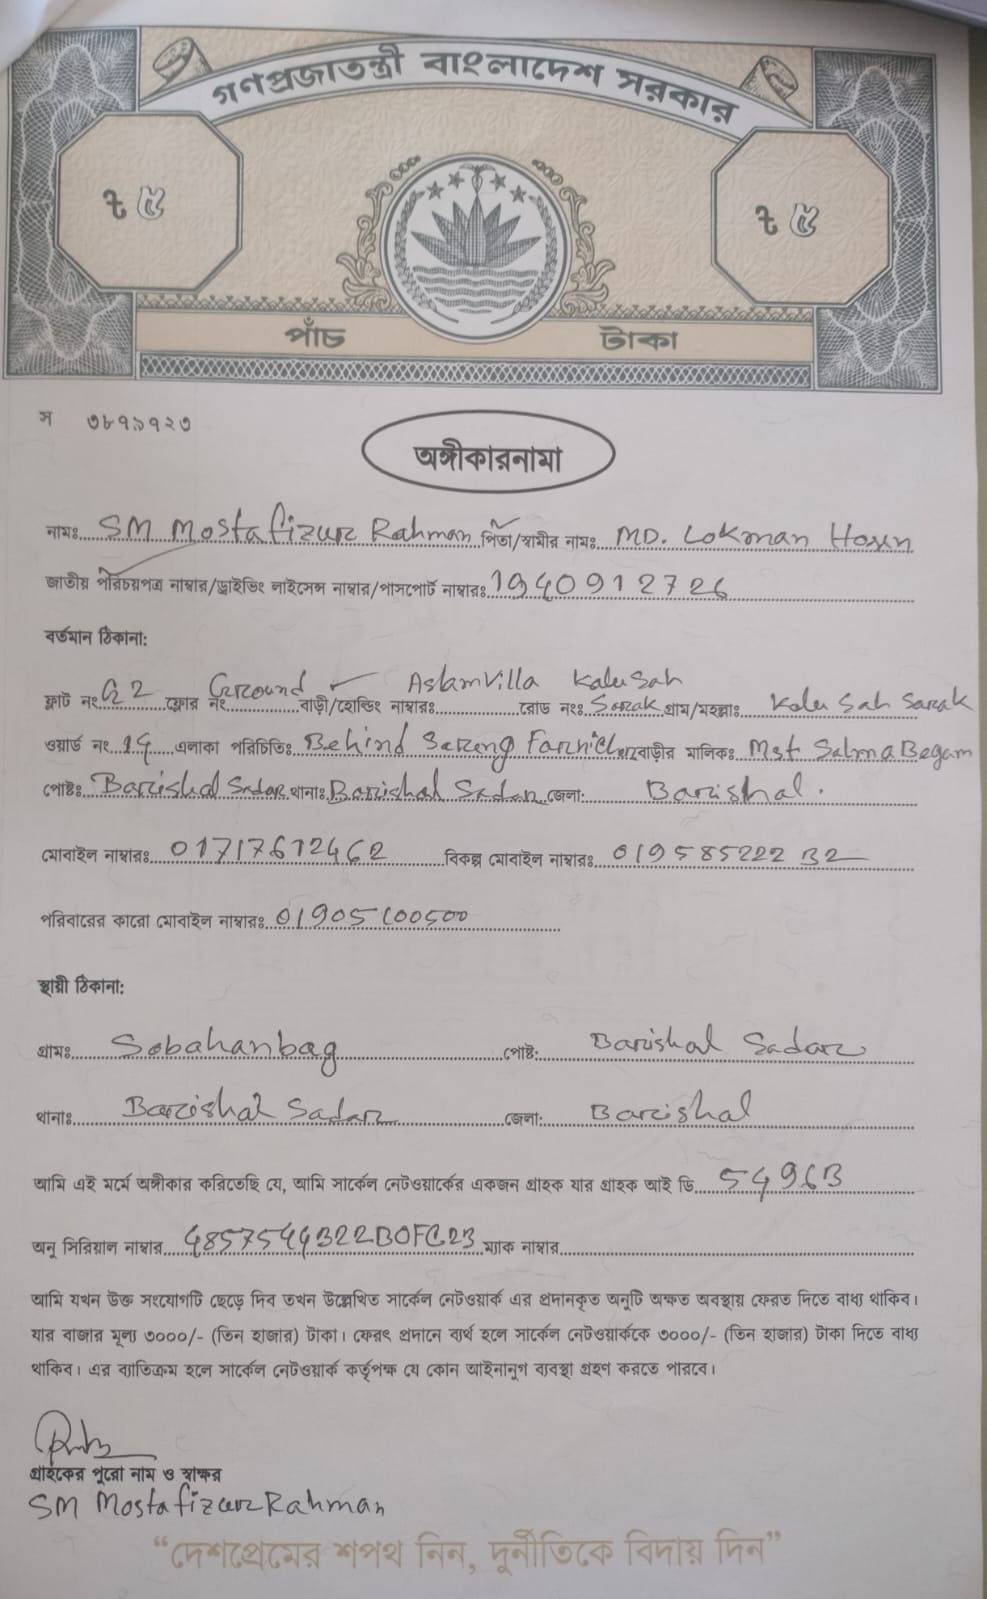 গণপ্রজাতন্ত্রী বাংলাদেশ সরকার
৳ ৫ ৳ ৫
পাঁচ টাকা
স ৩৮৭৯৭২৩
অঙ্গীকারনামা
নামঃ SM Mostafizur Rahman পিতা/স্বামীর নামঃ MD. Lokman Hosen
জাতীয় পরিচয়পত্র নাম্বার/ড্রাইভিং লাইসেন্স নাম্বার/পাসপোর্ট নাম্বারঃ 1940912726
বর্তমান ঠিকানা:
ফ্লাট নং G2 ফ্লোর নং Ground বাড়ী/হোল্ডিং নাম্বারঃ Aslam villa রোড নংঃ Kalu Sah Sarak গ্রাম/মহল্লাঃ Kalu Sah Sarak
ওয়ার্ড নং 19 এলাকা পরিচিতিঃ Behind Sareng বাড়ীর মালিকঃ Mst Salma Begam
পোষ্টঃ Barishal Sadar থানাঃ Barishal Sadar জেলা: Barishal.
মোবাইল নাম্বারঃ 01717612462 বিকল্প মোবাইল নাম্বারঃ 01958522232
পরিবারের কারো মোবাইল নাম্বারঃ 01905100500
স্থায়ী ঠিকানা:
গ্রামঃ Sobahanbag পোষ্ট: Barishal Sadar
থানাঃ Barishal Sadar জেলা: Barishal
আমি এই মর্মে অঙ্গীকার করিতেছি যে, আমি সার্কেল নেটওয়ার্কের একজন গ্রাহক যার গ্রাহক আই ডি 54963
অনু সিরিয়াল নাম্বার 48575449322B0FC23 ম্যাক নাম্বার
আমি যখন উক্ত সংযোগটি ছেড়ে দিব তখন উল্লেখিত সার্কেল নেটওয়ার্ক এর প্রদানকৃত অনুটি অক্ষত অবস্থায় ফেরত দিতে বাধ্য থাকিব।
যার বাজার মূল্য ৩০০০/- (তিন হাজার) টাকা। ফেরৎ প্রদানে ব্যর্থ হলে সার্কেল নেটওয়ার্ককে ৩০০০/- (তিন হাজার) টাকা দিতে বাধ্য
থাকিব। এর ব্যাতিক্রম হলে সার্কেল নেটওয়ার্ক কর্তৃপক্ষ যে কোন আইনানুগ ব্যবস্থা গ্রহণ করতে পারবে।
গ্রাহকের পুরো নাম ও স্বাক্ষর
SM Mostafizur Rahman
“দেশপ্রেমের শপথ নিন, দুর্নীতিকে বিদায় দিন”